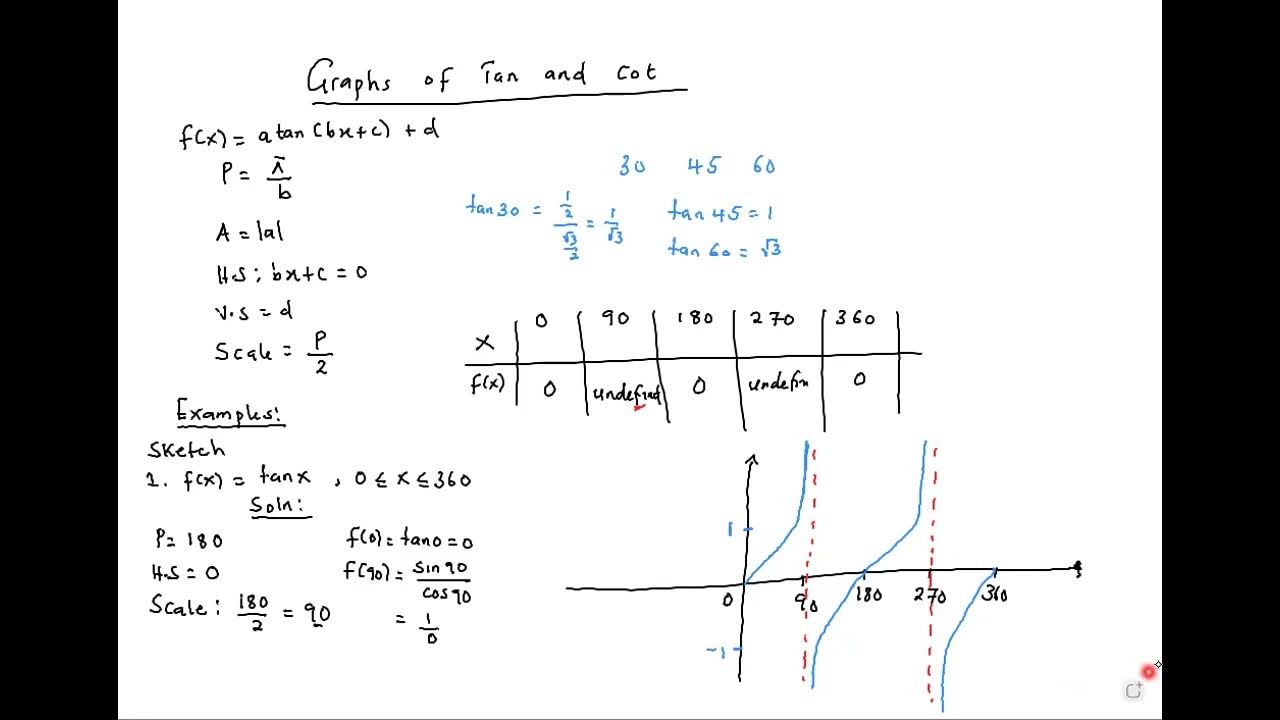 Graphs of Tan and Cot
f(x) = a tan(bx+c) + d
P = π/b
A = |a|
H.S : bx+c = 0
V.S = d
Scale = P/2
30 45 60
tan 30 = (1/2)/(√3/2) = 1/√3
tan 45 = 1
tan 60 = √3
x 0 90 180 270 360
f(x) 0 undefined 0 undefin 0
Examples:
Sketch
1. f(x) = tan x , 0 ≤ x ≤ 360
Soln:
P = 180
H.S = 0
Scale : 180/2 = 90
f(0) = tan 0 = 0
f(90) = sin 90/cos 90
= 1/0
1
-1
0 90 180 270 360